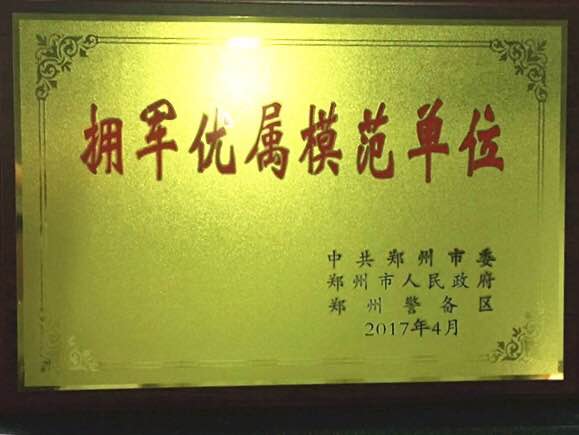 拥军优属模范单位
中共郑州市委
郑州市人民政府
郑州警备区
2017年4月